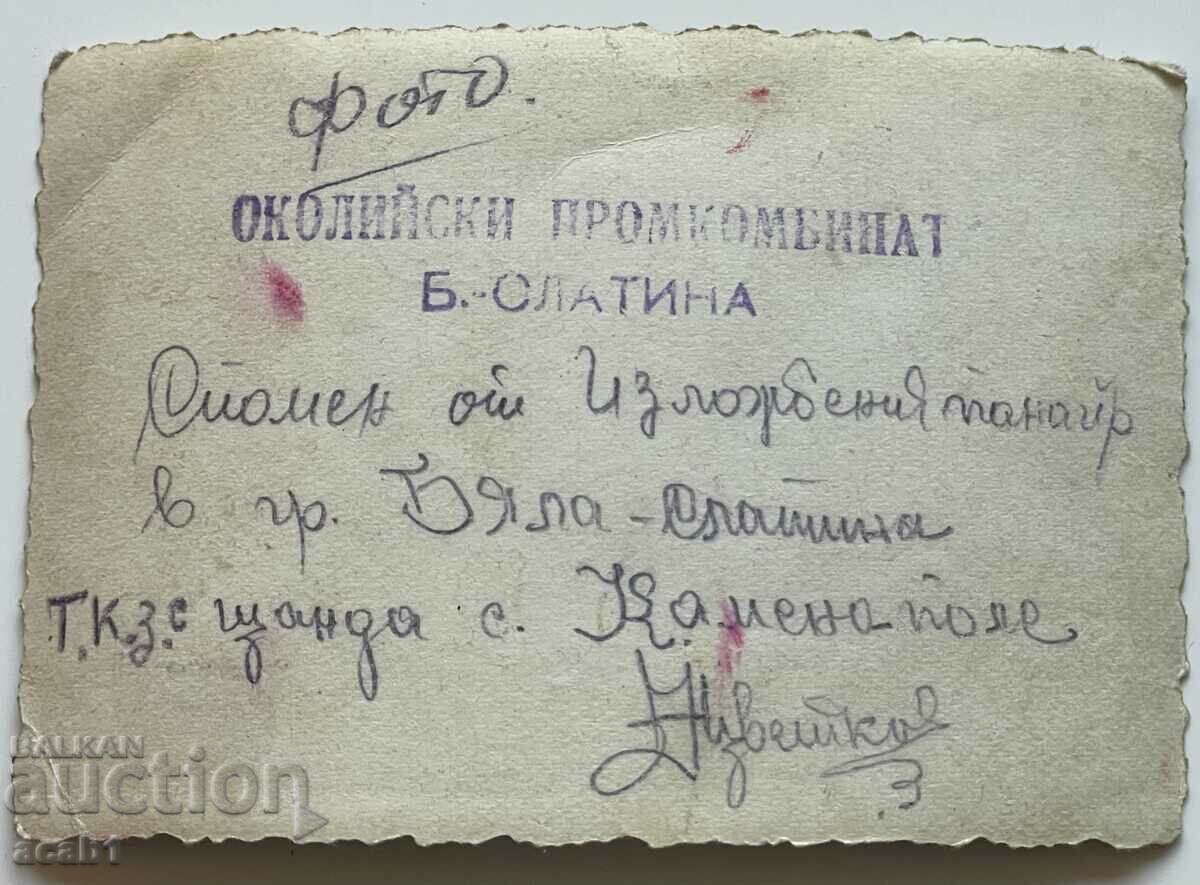 Фото.
ОКОЛИЙСКИ ПРОМКОМБИНАТ
Б.-СЛАТИНА
Спомен от Изложбения панаир
в гр. Бяла-Слатина
Т.К.З.С щанда с. Камено поле
Цветков
BALKAN
auction
acab1